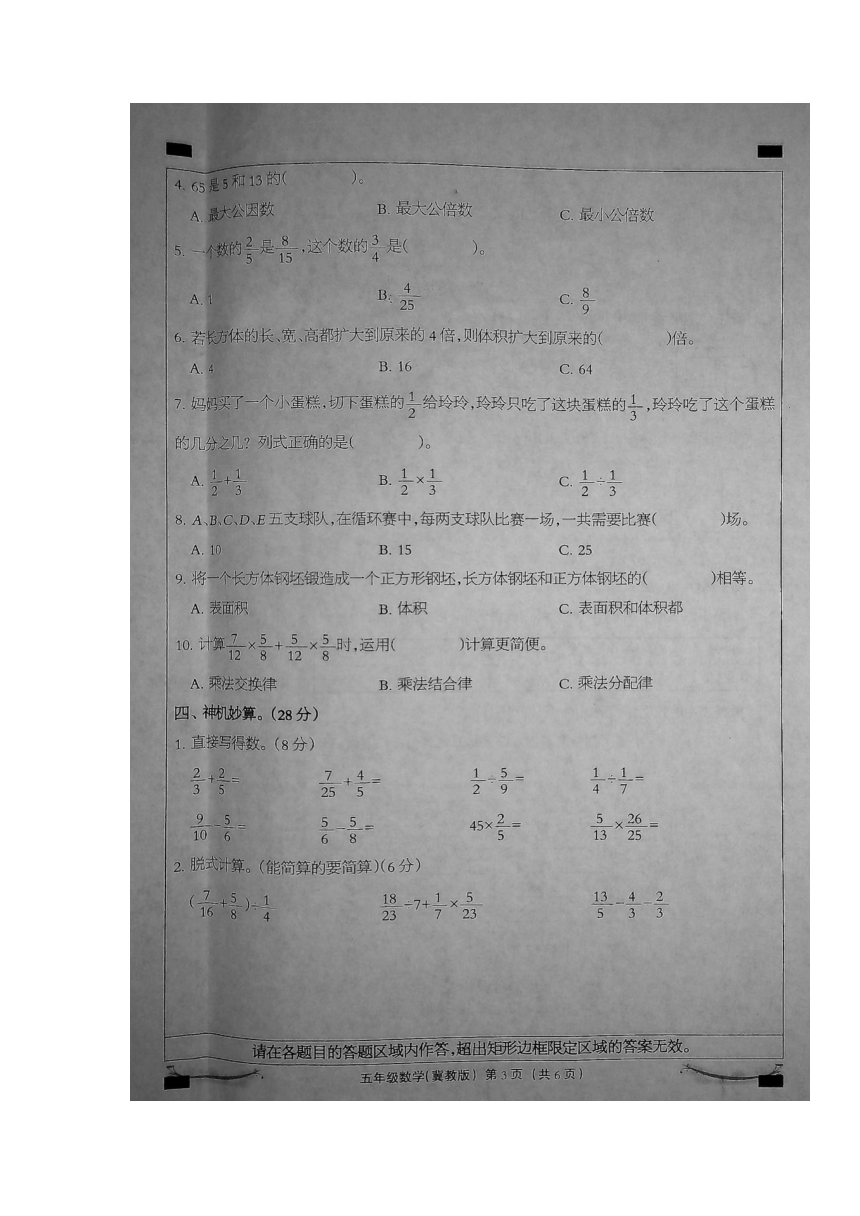 4. 65是5和13的(　　)。
A. 最大公因数　B. 最大公倍数　C. 最小公倍数
5. 一个数的2/5是8/15,这个数的3/4是(　　)。
A. 1　B. 4/25　C. 8/9
6. 若长方体的长、宽、高都扩大到原来的4倍,则体积扩大到原来的(　　)倍。
A. 4　B. 16　C. 64
7. 妈妈买了一个小蛋糕,切下蛋糕的1/2给玲玲,玲玲只吃了这块蛋糕的1/3,玲玲吃了这个蛋糕
的几分之几? 列式正确的是(　　)。
A. 1/2+1/3　B. 1/2×1/3　C. 1/2÷1/3
8. A、B、C、D、E五支球队,在循环赛中,每两支球队比赛一场,一共需要比赛(　　)场。
A. 10　B. 15　C. 25
9. 将一个长方体钢坯锻造成一个正方形钢坯,长方体钢坯和正方体钢坯的(　　)相等。
A. 表面积　B. 体积　C. 表面积和体积都
10. 计算7/12×5/8+5/12×5/8时,运用(　　)计算更简便。
A. 乘法交换律　B. 乘法结合律　C. 乘法分配律
四、神机妙算。(28分)
1. 直接写得数。(8分)
2/3+2/5=　7/25+4/5=　1/2÷5/9=　1/4÷1/7=
9/10-5/6=　5/6-5/8=　45×2/5=　5/13×26/25=
2. 脱式计算。(能简算的要简算)(6分)
(7/16+5/8)÷1/4　18/23÷7+1/7×5/23　13/5-4/3-2/3
请在各题目的答题区域内作答,超出矩形边框限定区域的答案无效。
五年级数学(冀教版) 第3页 (共6页)